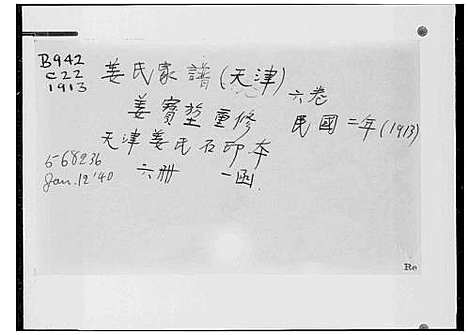 B942
C22
1913
姜氏家譜(天津)
六卷
姜寶堃重修
民國二年(1913)
天津姜氏石印本
568236
六冊 一函.
Jan. 12 '40
Re